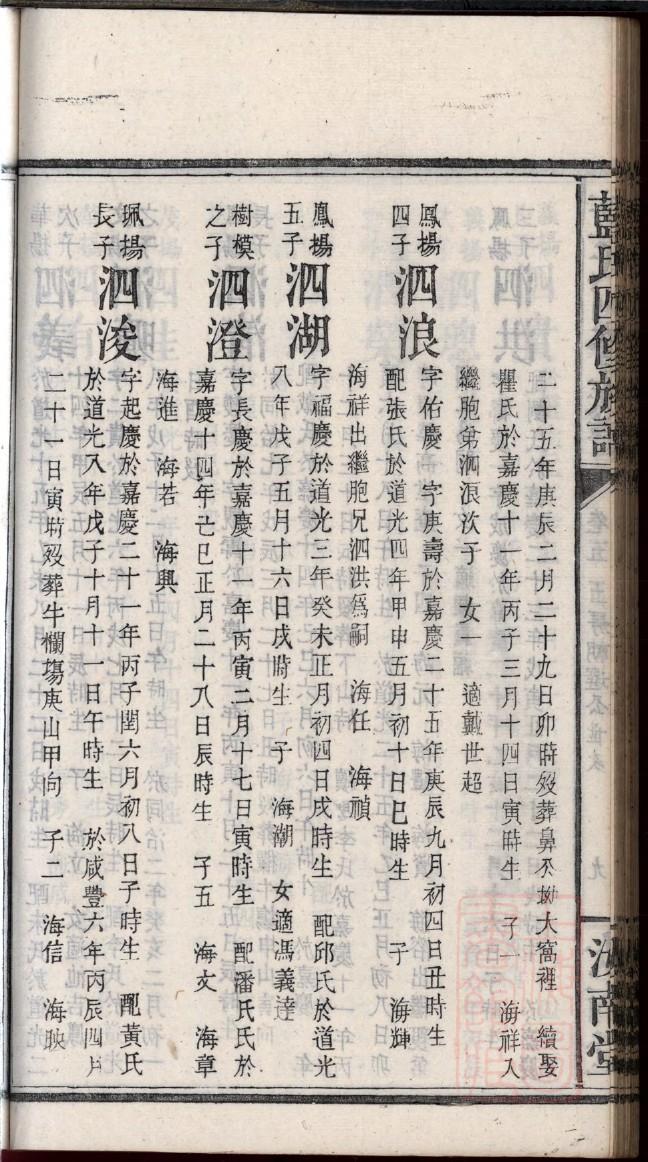 藍氏四修族譜
汝南堂
二十五年庚辰二月二十九日卯時歿葬鼻公坳大窩裡 續娶
瞿氏於嘉慶十一年丙子三月十四日寅時生 子一 海祥入
繼胞弟泗浪次子 女一 適戴世超
鳳揚四子 泗浪 字佑慶 字庚壽於嘉慶二十五年庚辰九月初四日丑時生
配張氏於道光四年甲申五月初十日巳時生 子 海輝
海祥出繼胞兄泗洪為嗣 海任 海禎
鳳揚五子 泗湖 字福慶於道光三年癸未正月初四日戌時生 配邱氏於道光
八年戊子五月十六日戌時生 子 海潮 女適馮義達
樹模之子 泗澄 字長慶於嘉慶十一年丙寅二月十七日寅時生 配潘氏氏於
嘉慶十四年己巳正月二十八日辰時生 子五 海文 海章
海進 海若 海興
珮揚長子 泗浚 字起慶於嘉慶二十一年丙子閏六月初八日子時生 配黃氏
於道光八年戊子十月十一日午時生 於咸豐六年丙辰四月
二十一日寅時歿葬牛欄塲庚山甲向 子二 海信 海映